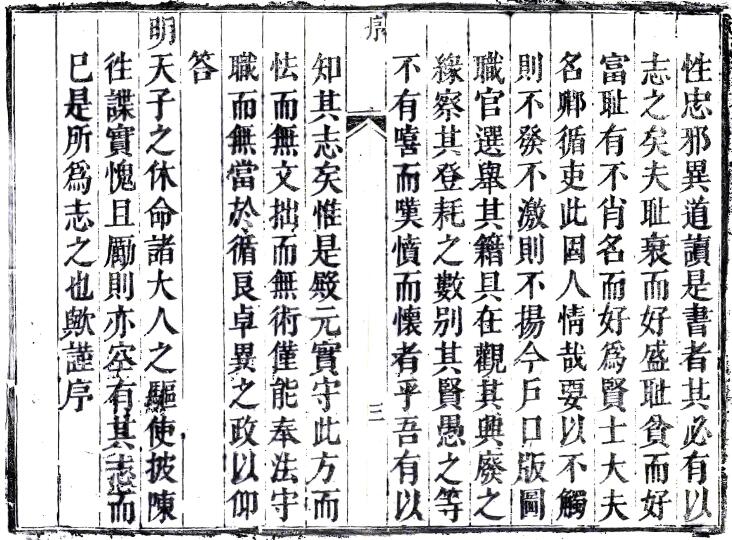 性忠邪異道讀是書者其必有以
志之矣夫耻衰而好盛耻貧而好
富耻有不肖名而好爲賢士大夫
名鄊循吏此因人情哉要以不觸
則不發不激則不揚今戶口版圖
職官選舉其籍具在觀其興廢之
緣察其登耗之數別其賢愚之等
不有嘻而嘆憤而懷者乎吾有以
序
三
知其志矣惟是毅元實守此方而
怯而無文拙而無術僅能奉法守
職而無當於循良卓異之政以仰
答
明天子之休命諸大人之驅使披陳
徃諜實愧且勵則亦空有其志而
巳是所爲志之也歟謹序